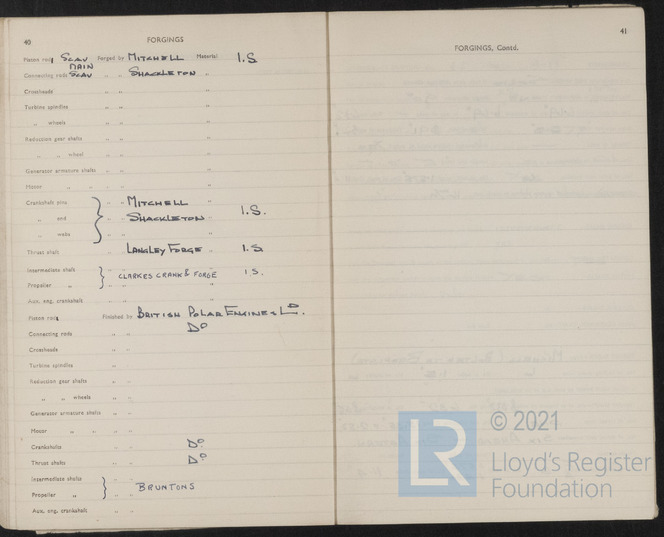 40
FORGINGS
Piston rods SCAV Forged by MITCHELL Material I.S
MAIN
Connecting rods SCAV " " SHACKLETON "
Crossheads " " "
Turbine spindles " " "
" wheels " " "
Reduction gear shafts " " "
" " wheel " " "
Generator armature shafts " " "
Motor " " " " "
Crankshaft pins " " MITCHELL
" and " " SHACKLETON I.S.
" webs " "
Thrust shaft LANGLEY FORGE " I.S
Intermediate shaft " CLARKES CRANK & FORGE I S.
Propeller " " " "
Aux. eng. crankshaft " " "
Piston rods Finished by BRITISH POLAR ENGINES LD.
Connecting rods " " Do
Crossheads " "
Turbine spindles " "
Reduction gear shafts " "
" " wheels " "
Generator armature shafts " "
Motor " " " "
Crankshafts " " Do
Thrust shafts " " Do
Intermediate shafts " " BRUNTONS
Propeller " " "
Aux. eng. crankshaft " "
41
FORGINGS, Contd.
LR
© 2021
Lloyd's Register
Foundation